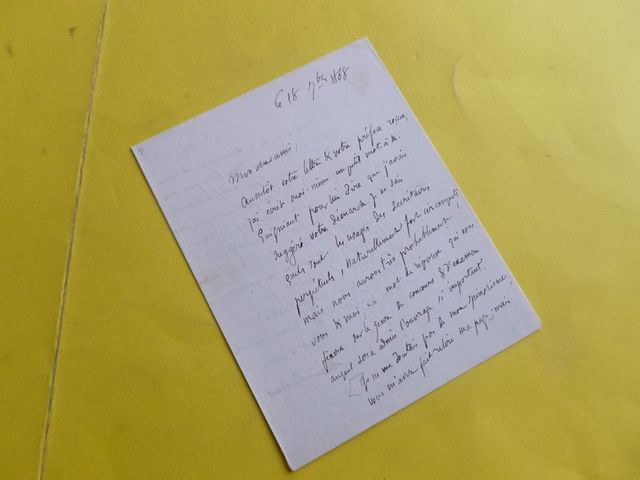 Ce 18 7bre 1868
Mon cher ami,
Aussitôt votre lettre & votre préface reçue,
j'ai écrit moi-même un petit mot à M.
Guigniaut pour lui dire que j'avais
suggéré votre démarche. Je ne sais
quels sont les usages des secrétaires
perpétuels, naturellement fort circonspects;
mais nous aurons très probablement,
vous & moi, un mot de réponse qui vous
fixera sur le genre de concours & d'examen
auquel sera admis l'ouvrage si important.
Je ne me doutais pas de mon
vous m'avez fait relire ma page; mais